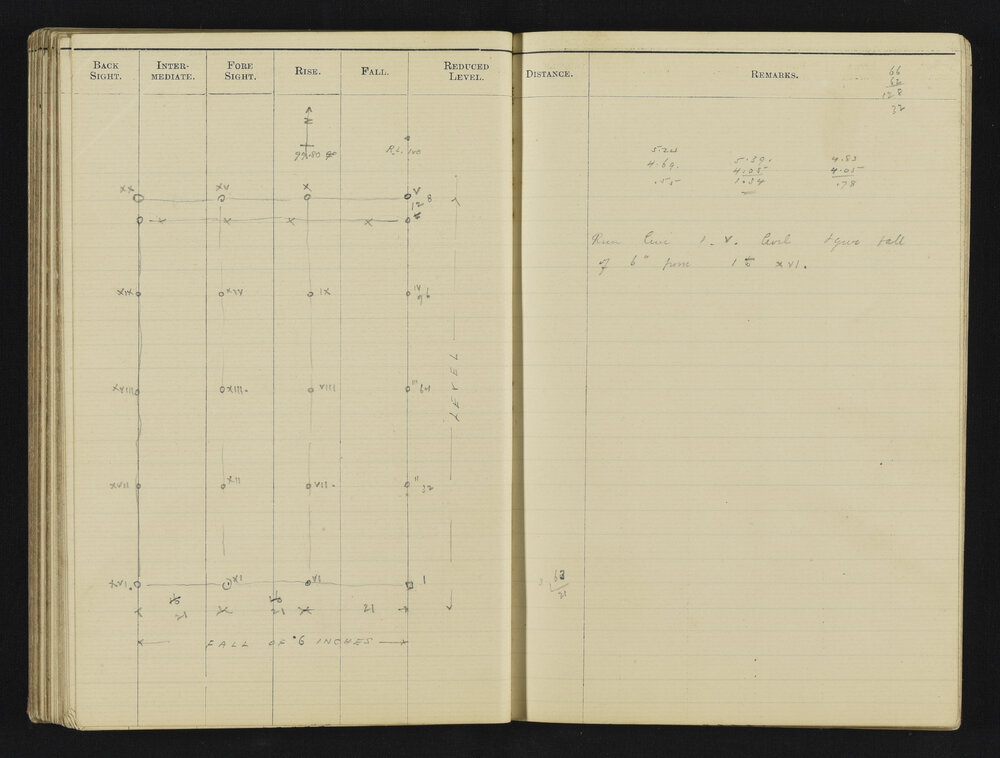 BACK SIGHT. INTER-MEDIATE. FORE SIGHT. RISE. FALL. REDUCED LEVEL. DISTANCE. REMARKS.
66
62
128
32
N
99.80
R.L. 100
4.69. 5.39. 4.83
4.05 4.05
.55 1.34 .78
XX XV X V
128
X X X X
Run line 1 - V. level & give fall
of 6" from 1 to XVI.
XIX XIV IX IV
96
XVIII XIII VIII 64
LEVEL
XVII XII VII 32
XVI XI VI 1
63
21
21 21 21
FALL OF 6 INCHES